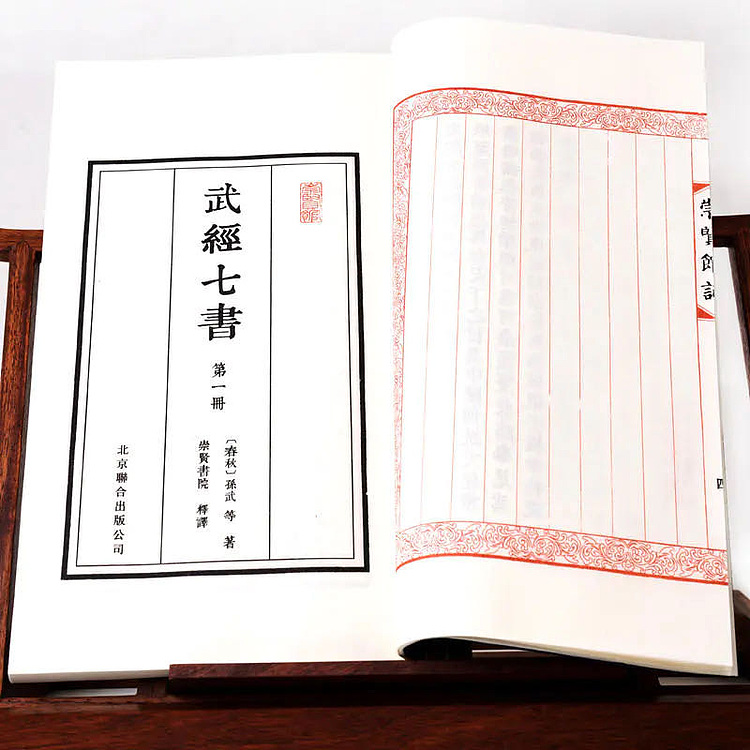 武經七書
第一冊
〔春秋〕孫武 等 著
崇賢書院 釋譯
北京聯合出版公司
崇賢館記
四